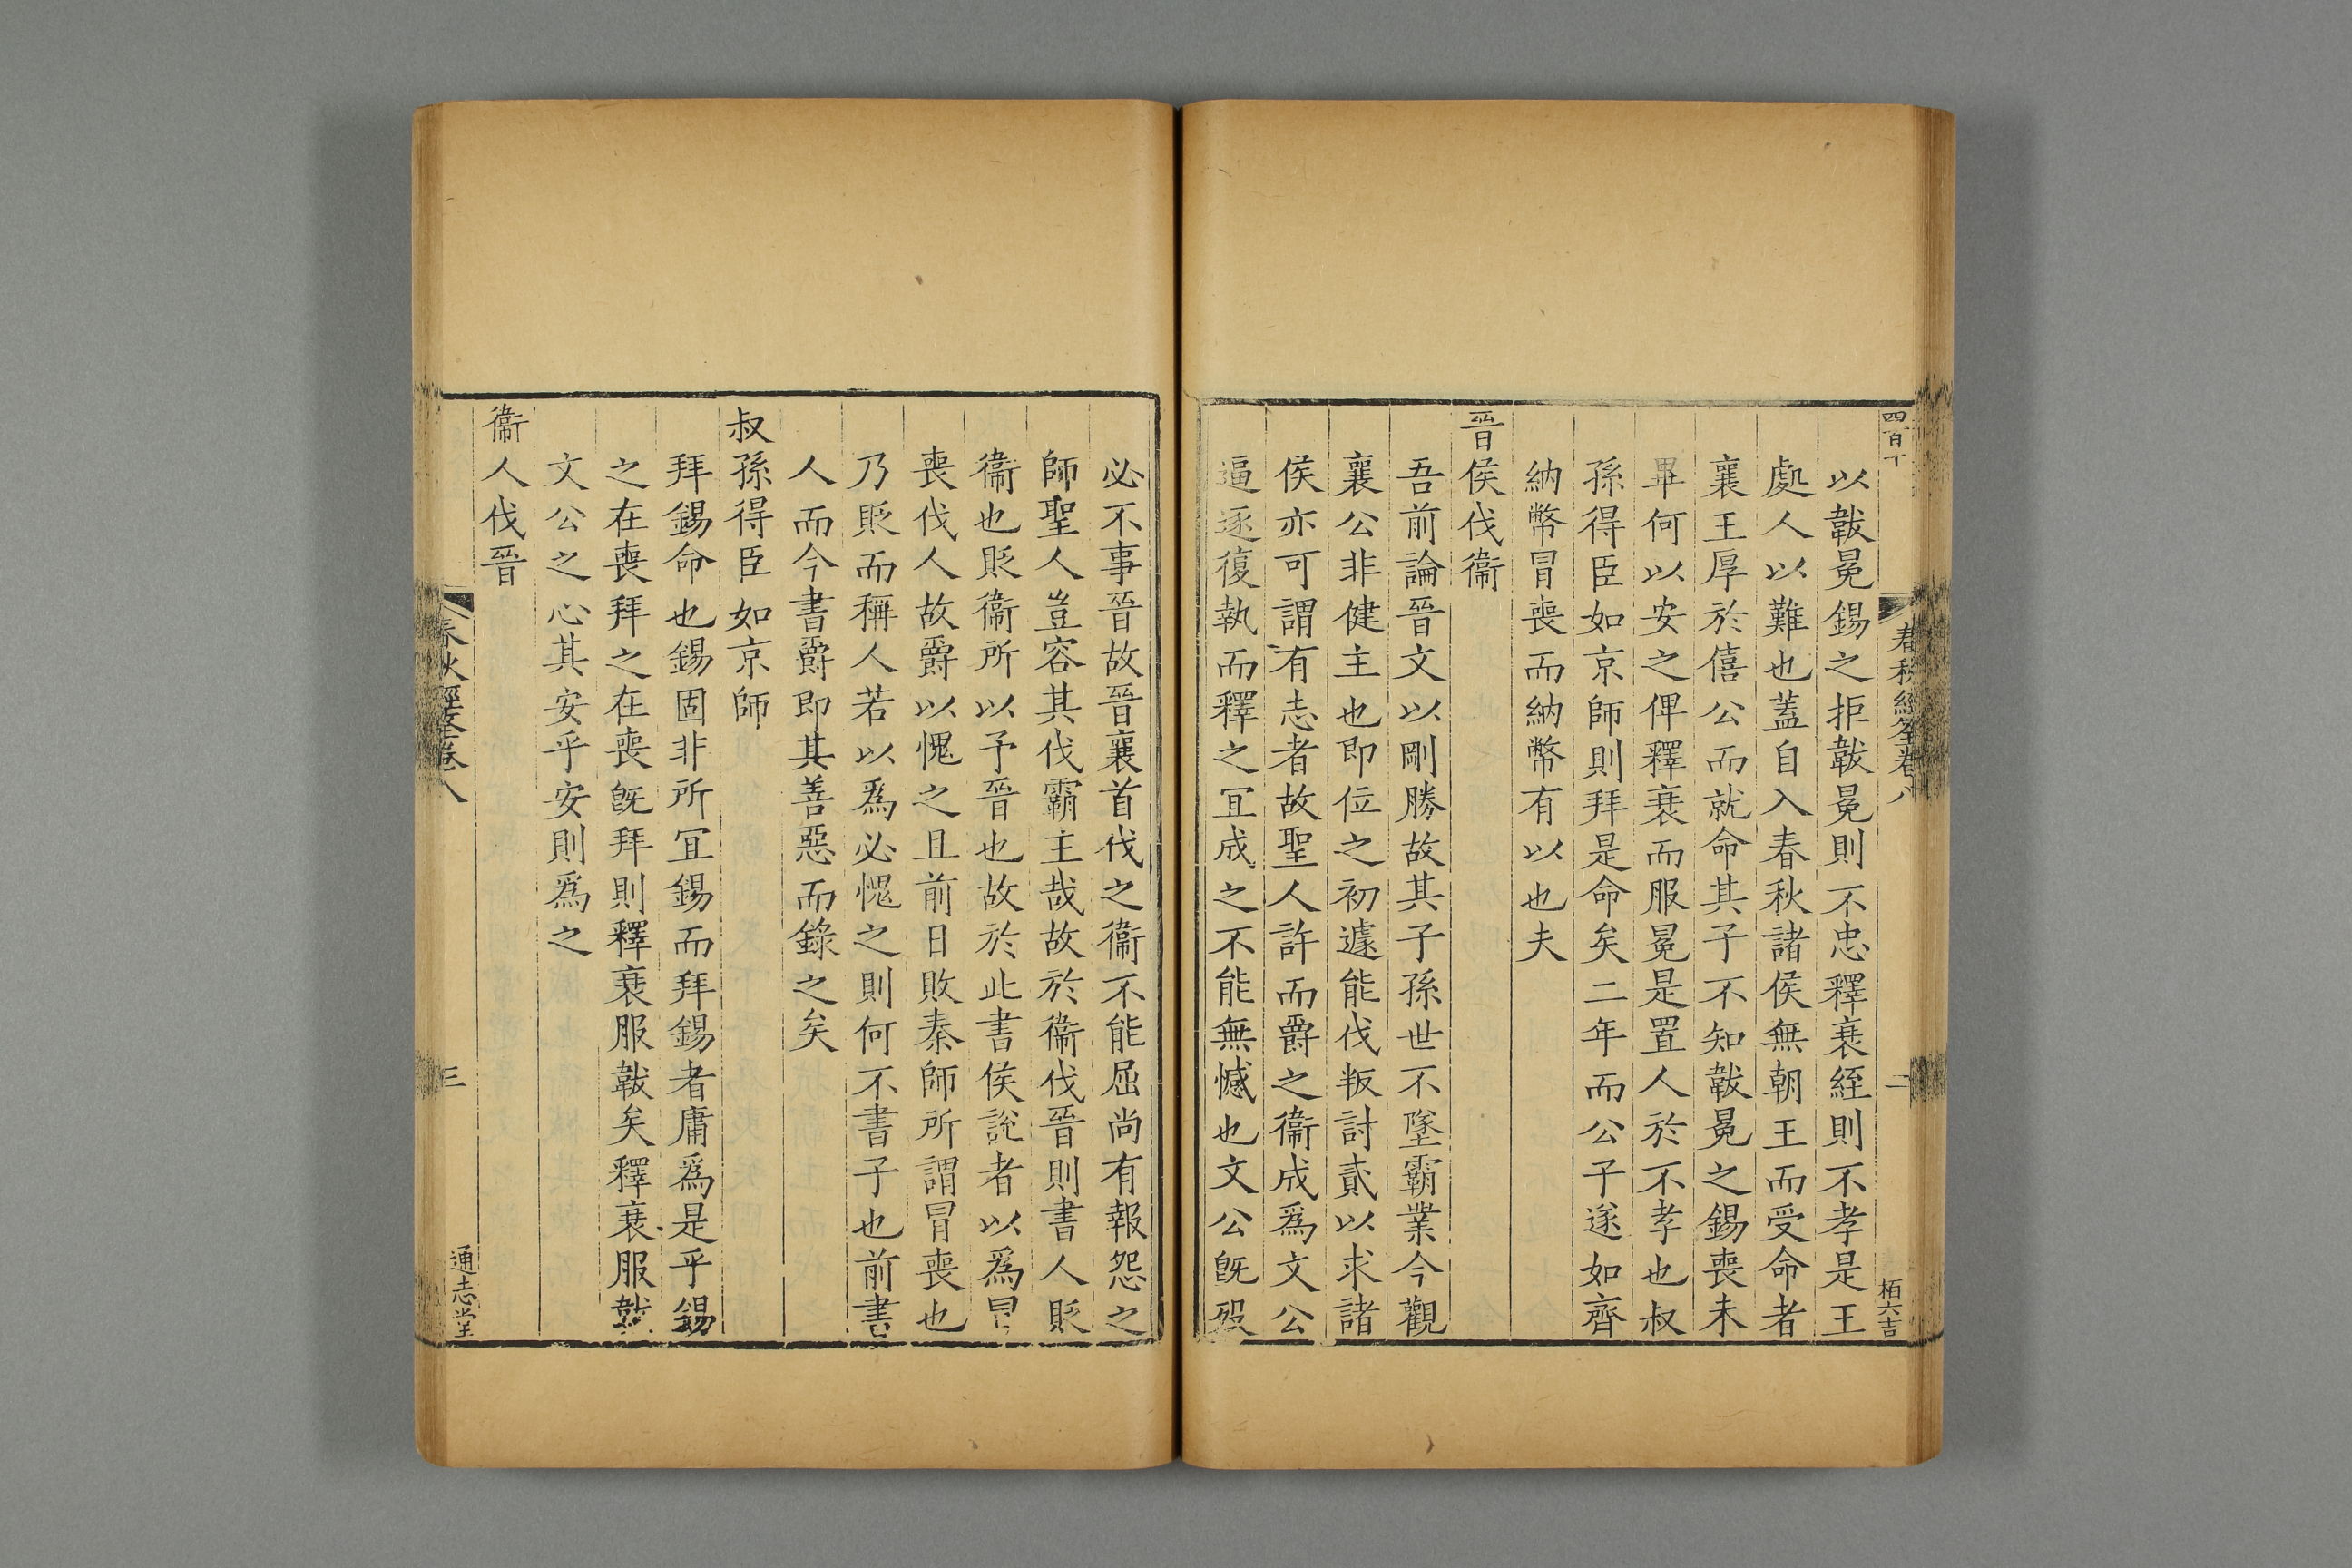 四百十
春秋經筌卷八
二
栢六吉
以韍冕錫之拒韍冕則不忠釋衰絰則不孝是王
處人以難也蓋自入春秋諸侯無朝王而受命者
襄王厚於僖公而就命其子不知韍冕之錫喪未
畢何以安之俾釋衰而服冕是置人於不孝也叔
孫得臣如京師則拜是命矣二年而公子遂如齊
納幣冒喪而納幣有以也夫
晉侯伐衞
吾前論晉文以剛勝故其子孫世不墜霸業今觀
襄公非健主也即位之初遽能伐叛討貳以求諸
侯亦可謂有志者故聖人許而爵之衞成爲文公
逼逐復執而釋之冝成之不能無憾也文公旣歿
必不事晉故晉襄首伐之衞不能屈尚有報怨之
師聖人豈容其伐霸主哉故於衞伐晉則書人貶
衞也貶衞所以予晉也故於此書侯說者以爲冒
喪伐人故爵以愧之且前日敗秦師所謂冒喪也
乃貶而稱人若以爲必愧之則何不書子也前書
人而今書爵即其善惡而錄之矣
叔孫得臣如京師
拜錫命也錫固非所冝錫而拜錫者庸爲是乎錫
之在喪拜之在喪旣拜則釋衰服韍矣釋衰服韍
文公之心其安乎安則爲之
衞人伐晉
春秋經筌卷八
三
通志堂